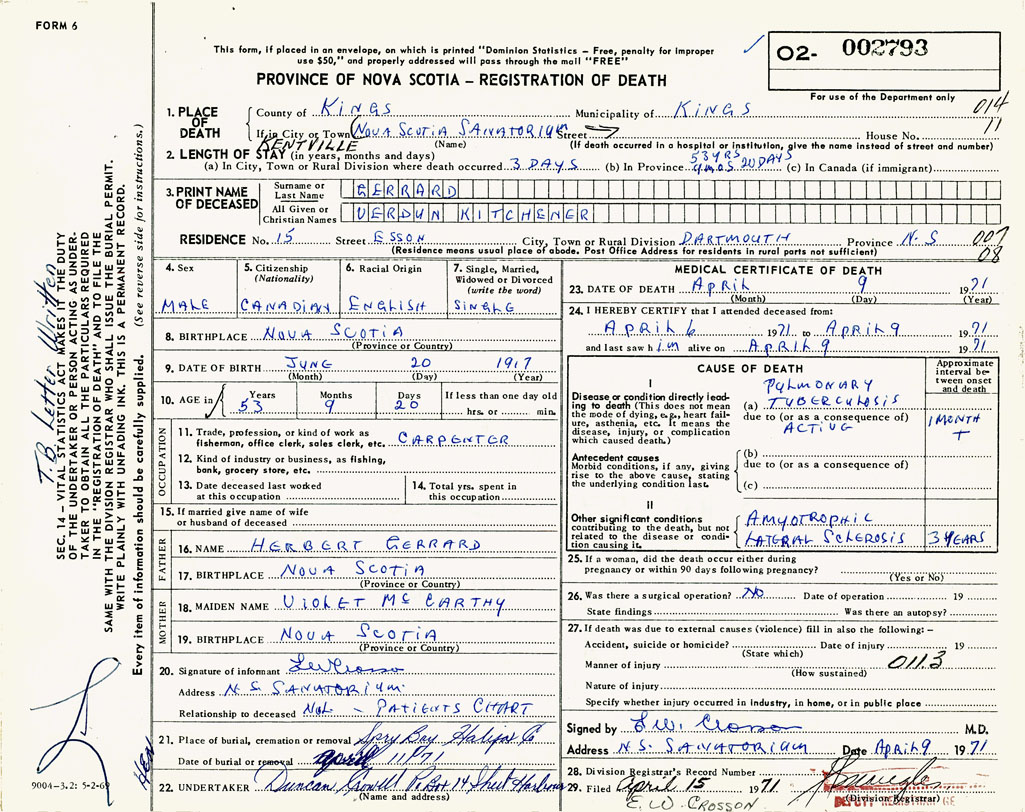 FORM 6
This form, if placed in an envelope, on which is printed "Dominion Statistics – Free, penalty for improper
use $50," and properly addressed will pass through the mail "FREE"
PROVINCE OF NOVA SCOTIA – REGISTRATION OF DEATH
02- 002793
For use of the Department only
014
11
1. PLACE OF DEATH
County of KINGS Municipality of KINGS
If in City or Town NOVA SCOTIA SANATORIUM Street House No.
KENTVILLE (Name) (If death occurred in a hospital or institution, give the name instead of street and number)
2. LENGTH OF STAY (in years, months and days)
53 YRS
(a) In City, Town or Rural Division where death occurred 3 DAYS (b) In Province 9 MOS 20 DAYS (c) In Canada (if immigrant)
3. PRINT NAME OF DECEASED
Surname or Last Name GERRARD
All Given or Christian Names VERDUN KITCHENER
RESIDENCE No. 15 Street ESSON City, Town or Rural Division DARTMOUTH Province N.S 007
(Residence means usual place of abode. Post Office Address for residents in rural parts not sufficient) 08
4. Sex
MALE
5. Citizenship
(Nationality)
CANADIAN
6. Racial Origin
ENGLISH
7. Single, Married,
Widowed or Divorced
(write the word)
SINGLE
8. BIRTHPLACE NOVA SCOTIA
(Province or Country)
9. DATE OF BIRTH JUNE 20 1917
(Month) (Day) (Year)
10. AGE in
Years Months Days If less than one day old
53 9 20 hrs. or min.
OCCUPATION
11. Trade, profession, or kind of work as
fisherman, office clerk, sales clerk, etc. CARPENTER
12. Kind of industry or business, as fishing,
bank, grocery store, etc.
13. Date deceased last worked
at this occupation
14. Total yrs. spent in
this occupation
15. If married give name of wife
or husband of deceased
FATHER
16. NAME HERBERT GERRARD
17. BIRTHPLACE NOVA SCOTIA
(Province or Country)
MOTHER
18. MAIDEN NAME VIOLET McCARTHY
19. BIRTHPLACE NOVA SCOTIA
(Province or Country)
20. Signature of informant
Address N.S. SANATORIUM
Relationship to deceased NIL – PATIENTS CHART
21. Place of burial, cremation or removal Spry Bay, Halifax Co.
Date of burial or removal april 11 71
22. UNDERTAKER Duncan Crowell P.O. Box 14 Sheet Harbour
(Name and address)
MEDICAL CERTIFICATE OF DEATH
23. DATE OF DEATH APRIL 9 1971
(Month) (Day) (Year)
24. I HEREBY CERTIFY that I attended deceased from:
APRIL 6 1971 to APRIL 9 1971
and last saw him alive on APRIL 9 1971
CAUSE OF DEATH
Approximate
interval be-
tween onset
and death
I
Disease or condition directly lead-
ing to death (This does not mean
the mode of dying, e.g., heart fail-
ure, asthenia, etc. It means the
disease, injury, or complication
which caused death.)
PULMONARY
(a) TUBERCULOSIS
due to (or as a consequence of)
ACTIVE
1 MONTH
+
Antecedent causes
Morbid conditions, if any, giving
rise to the above cause, stating
the underlying condition last.
(b)
due to (or as a consequence of)
(c)
II
Other significant conditions
contributing to the death, but not
related to the disease or condi-
tion causing it.
AMYOTROPHIC
LATERAL SCLEROSIS 3 YEARS
25. If a woman, did the death occur either during
pregnancy or within 90 days following pregnancy?
(Yes or No)
26. Was there a surgical operation? NO Date of operation 19
State findings Was there an autopsy?
27. If death was due to external causes (violence) fill in also the following: –
Accident, suicide or homicide? Date of injury 19
(State which)
Manner of injury 011.3
(How sustained)
Nature of injury
Specify whether injury occurred in industry, in home, or in public place
Signed by E.W. Crosson M.D.
Address N.S. SANATORIUM Date APRIL 9 1971
28. Division Registrar's Record Number
29. Filed april 15 1971
(Division Registrar)
E. W. CROSSON
T.B. Letter Written
SEC. 14 – VITAL STATISTICS ACT MAKES IT THE DUTY
OF THE UNDERTAKER OR PERSON ACTING AS UNDER-
TAKER TO OBTAIN ALL THE PARTICULARS REQUIRED
IN THE "REGISTRATION OF DEATH" AND TO FILE THE
SAME WITH THE DIVISION REGISTRAR WHO SHALL ISSUE THE BURIAL PERMIT.
WRITE PLAINLY WITH UNFADING INK. THIS IS A PERMANENT RECORD.
Every item of information should be carefully supplied. (See reverse side for instructions.)
9004-3.2: 5-2-69